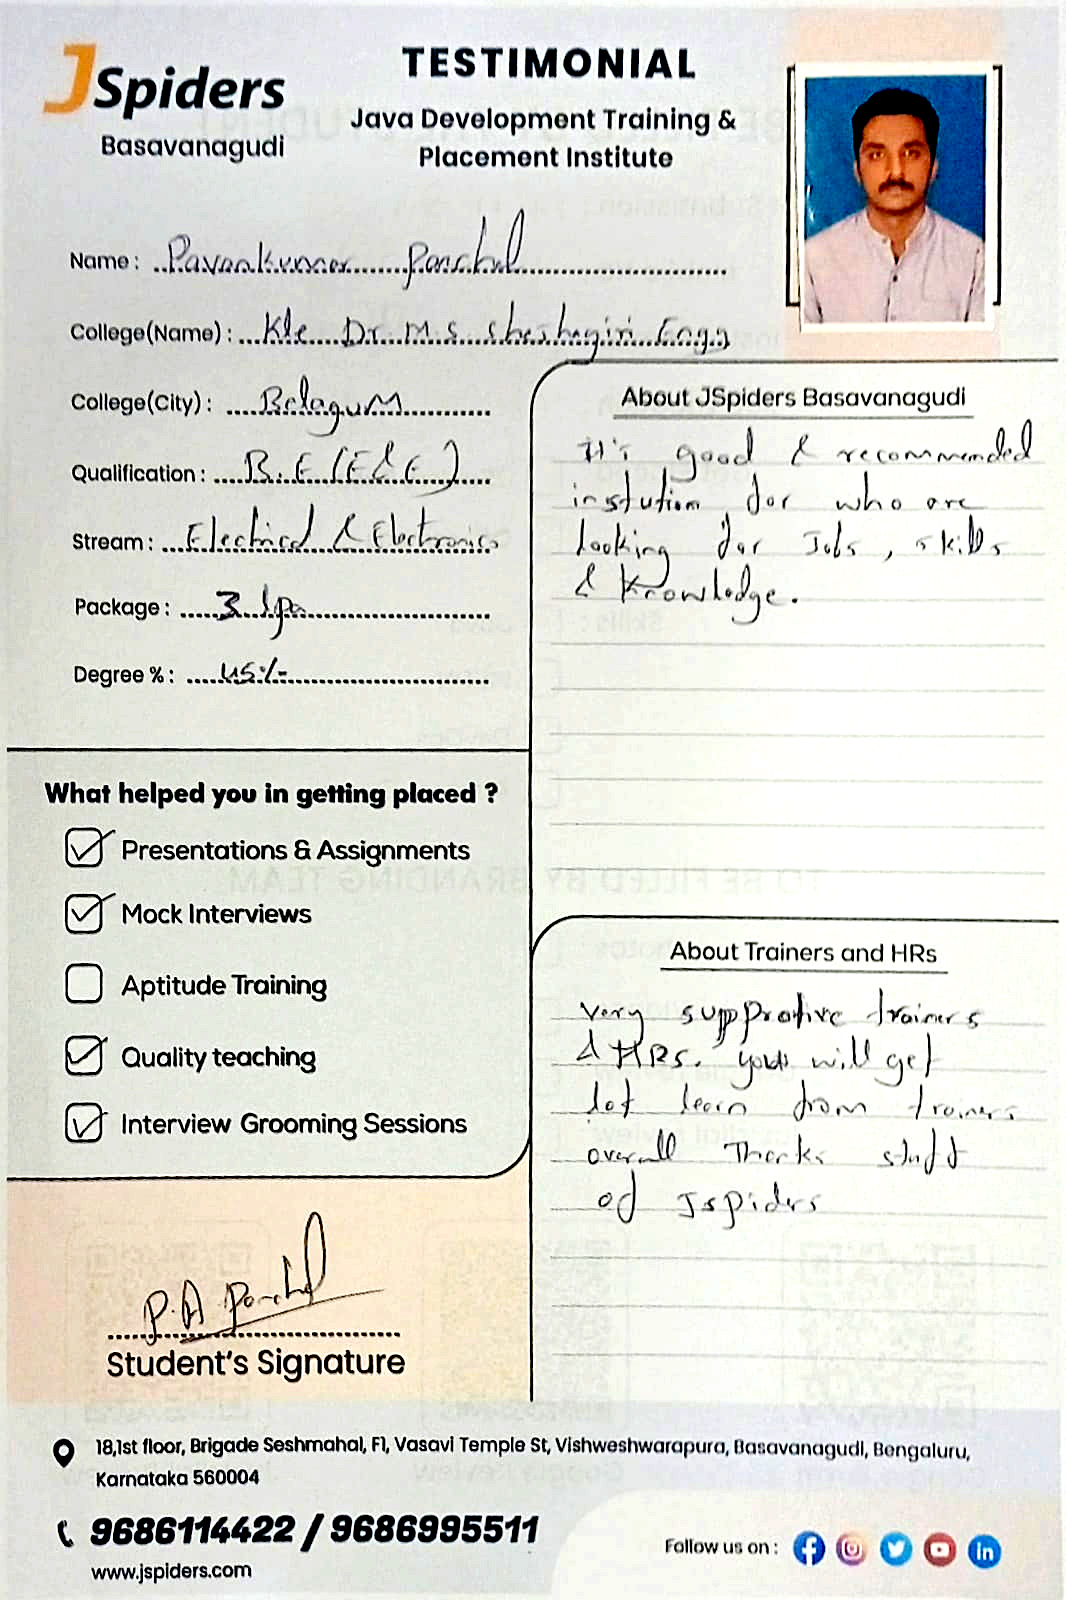 JSpiders
Basavanagudi
TESTIMONIAL
Java Development Training &
Placement Institute
Name : Pavankumar Panchal
College(Name) : Kle Dr. M.S. Sheshagiri Engg
College(City) : Belagum
Qualification : B.E (E&E)
Stream : Electrical & Electronics
Package : 3 lpa
Degree % : 45%
What helped you in getting placed ?
Presentations & Assignments
Mock Interviews
Aptitude Training
Quality teaching
Interview Grooming Sessions
P.A Panchal
Student's Signature
About JSpiders Basavanagudi
It's good & recommended
instution for who are
looking for Jobs, skills
& Knowledge.
About Trainers and HRs
very supprotive trainers
& HRs. you will get
lot learn from trainers
overall Thanks staff
of Jspiders
18,1st floor, Brigade Seshmahal, F1, Vasavi Temple St, Vishweshwarapura, Basavanagudi, Bengaluru,
Karnataka 560004
9686114422 / 9686995511
www.jspiders.com
Follow us on :